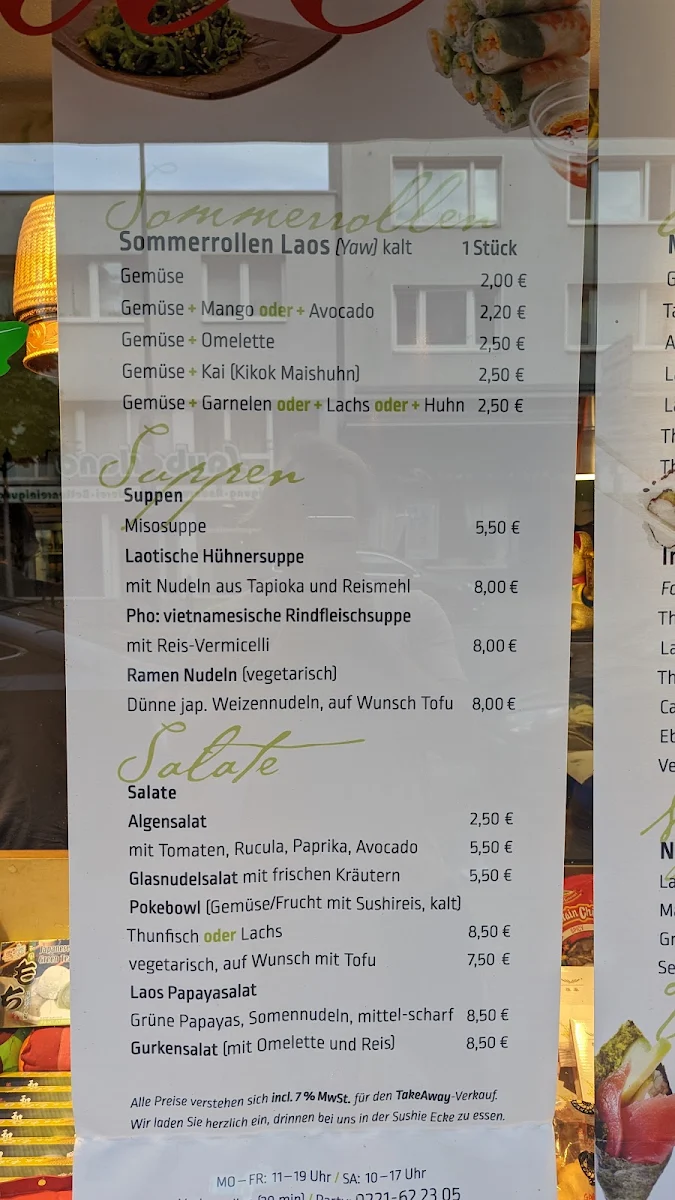 Sommerrollen
Sommerrollen Laos (Yaw) kalt 1 Stück
Gemüse 2,00 €
Gemüse + Mango oder + Avocado 2,20 €
Gemüse + Omelette 2,50 €
Gemüse + Kai (Kikok Maishuhn) 2,50 €
Gemüse + Garnelen oder + Lachs oder + Huhn 2,50 €
Suppen
Suppen
Misosuppe 5,50 €
Laotische Hühnersuppe
mit Nudeln aus Tapioka und Reismehl 8,00 €
Pho: vietnamesische Rindfleischsuppe
mit Reis-Vermicelli 8,00 €
Ramen Nudeln (vegetarisch)
Dünne jap. Weizennudeln, auf Wunsch Tofu 8,00 €
Salate
Salate
Algensalat 2,50 €
mit Tomaten, Rucula, Paprika, Avocado 5,50 €
Glasnudelsalat mit frischen Kräutern 5,50 €
Pokebowl (Gemüse/Frucht mit Sushireis, kalt)
Thunfisch oder Lachs 8,50 €
vegetarisch, auf Wunsch mit Tofu 7,50 €
Laos Papayasalat
Grüne Papayas, Somennudeln, mittel-scharf 8,50 €
Gurkensalat (mit Omelette und Reis) 8,50 €
Alle Preise verstehen sich incl. 7 % MwSt. für den TakeAway-Verkauf.
Wir laden Sie herzlich ein, drinnen bei uns in der Sushie Ecke zu essen.
MO – FR: 11 – 19 Uhr / SA: 10 – 17 Uhr
0221-62 23 05